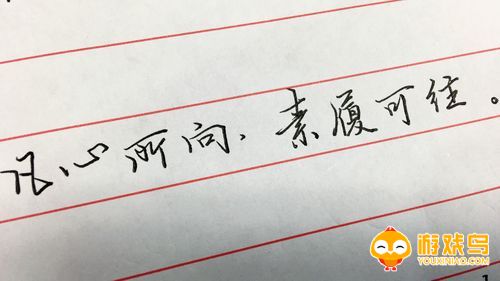 凡心所向,素履可往。
游戏鸟
YOUXINIAO.COM
1